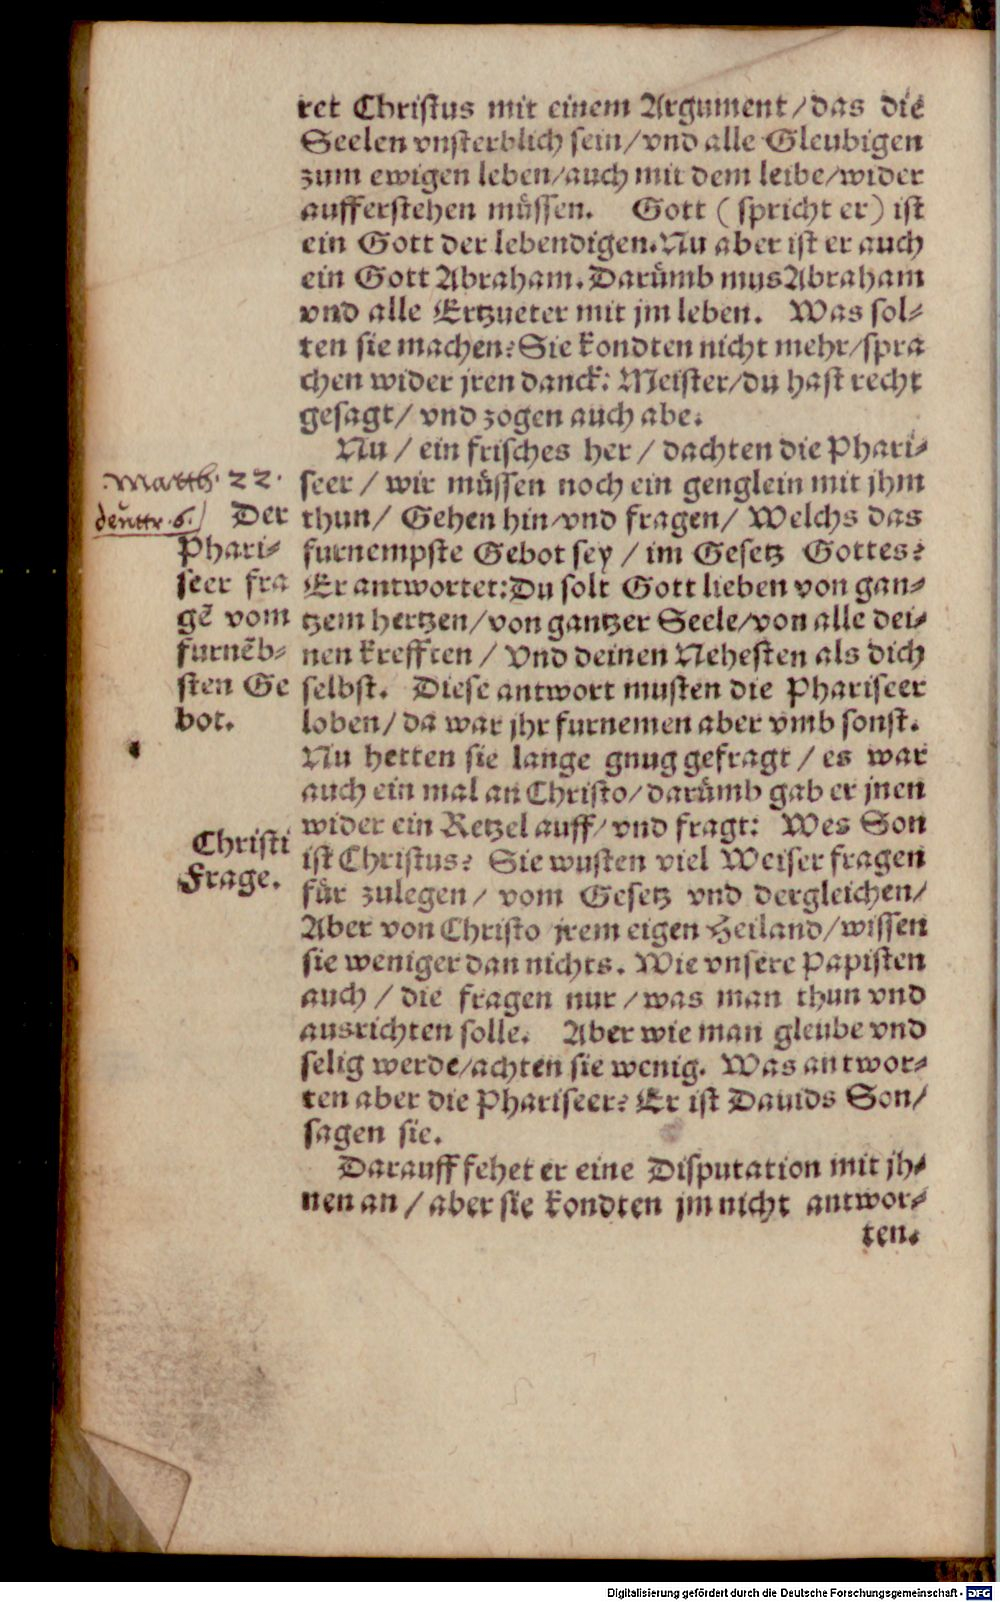 ret Christus mit einem Argument/das die
Seelen vnsterblich sein/vnd alle Gleubigen
zum ewigen leben/auch mit dem leibe/wider
aufferstehen müssen. Gott (spricht er) ist
ein Gott der lebendigen. Nu aber ist er auch
ein Gott Abraham. Darümb mus Abraham
vnd alle Ertzueter mit jm leben. Was sol-
ten sie machen? Sie kondten nicht mehr/spra
chen wider jren danck: Meister/du hast recht
gesagt/ vnd zogen auch abe.
Nu / ein frisches her / dachten die Phari-
seer / wir müssen noch ein genglein mit jhm
thun/ Gehen hin/vnd fragen/ Welchs das
furnempste Gebot sey / im Gesetz Gottes?
Er antwortet: Du solt Gott lieben von gan-
tzem hertzen/von gantzer Seele/von alle dei-
nen krefften / Vnd deinen Nehesten als dich
selbst. Diese antwort musten die Phariseer
loben/ da war jhr furnemen aber vmb sonst.
Nu hetten sie lange gnug gefragt / es war
auch ein mal an Christo/darümb gab er jnen
wider ein Retzel auff/ vnd fragt: Wes Son
ist Christus? Sie wusten viel Weiser fragen
für zulegen/ vom Gesetz vnd dergleichen/
Aber von Christo jrem eigen Heiland/wissen
sie weniger dan nichts. Wie vnsere Papisten
auch / die fragen nur / was man thun vnd
ausrichten solle. Aber wie man gleube vnd
selig werde/achten sie wenig. Was antwor-
ten aber die Phariseer? Er ist Dauids Son/
sagen sie.
Darauff fehet er eine Disputation mit jh-
nen an / aber sie kondten jm nicht antwor-
ten.
Matth. 22.
deuttr. 6.
Der
Phari-
seer fra
gē vom
furnēb-
sten Ge
bot.
Christi
Frage.
Digitalisierung gefördert durch die Deutsche Forschungsgemeinschaft - DFG